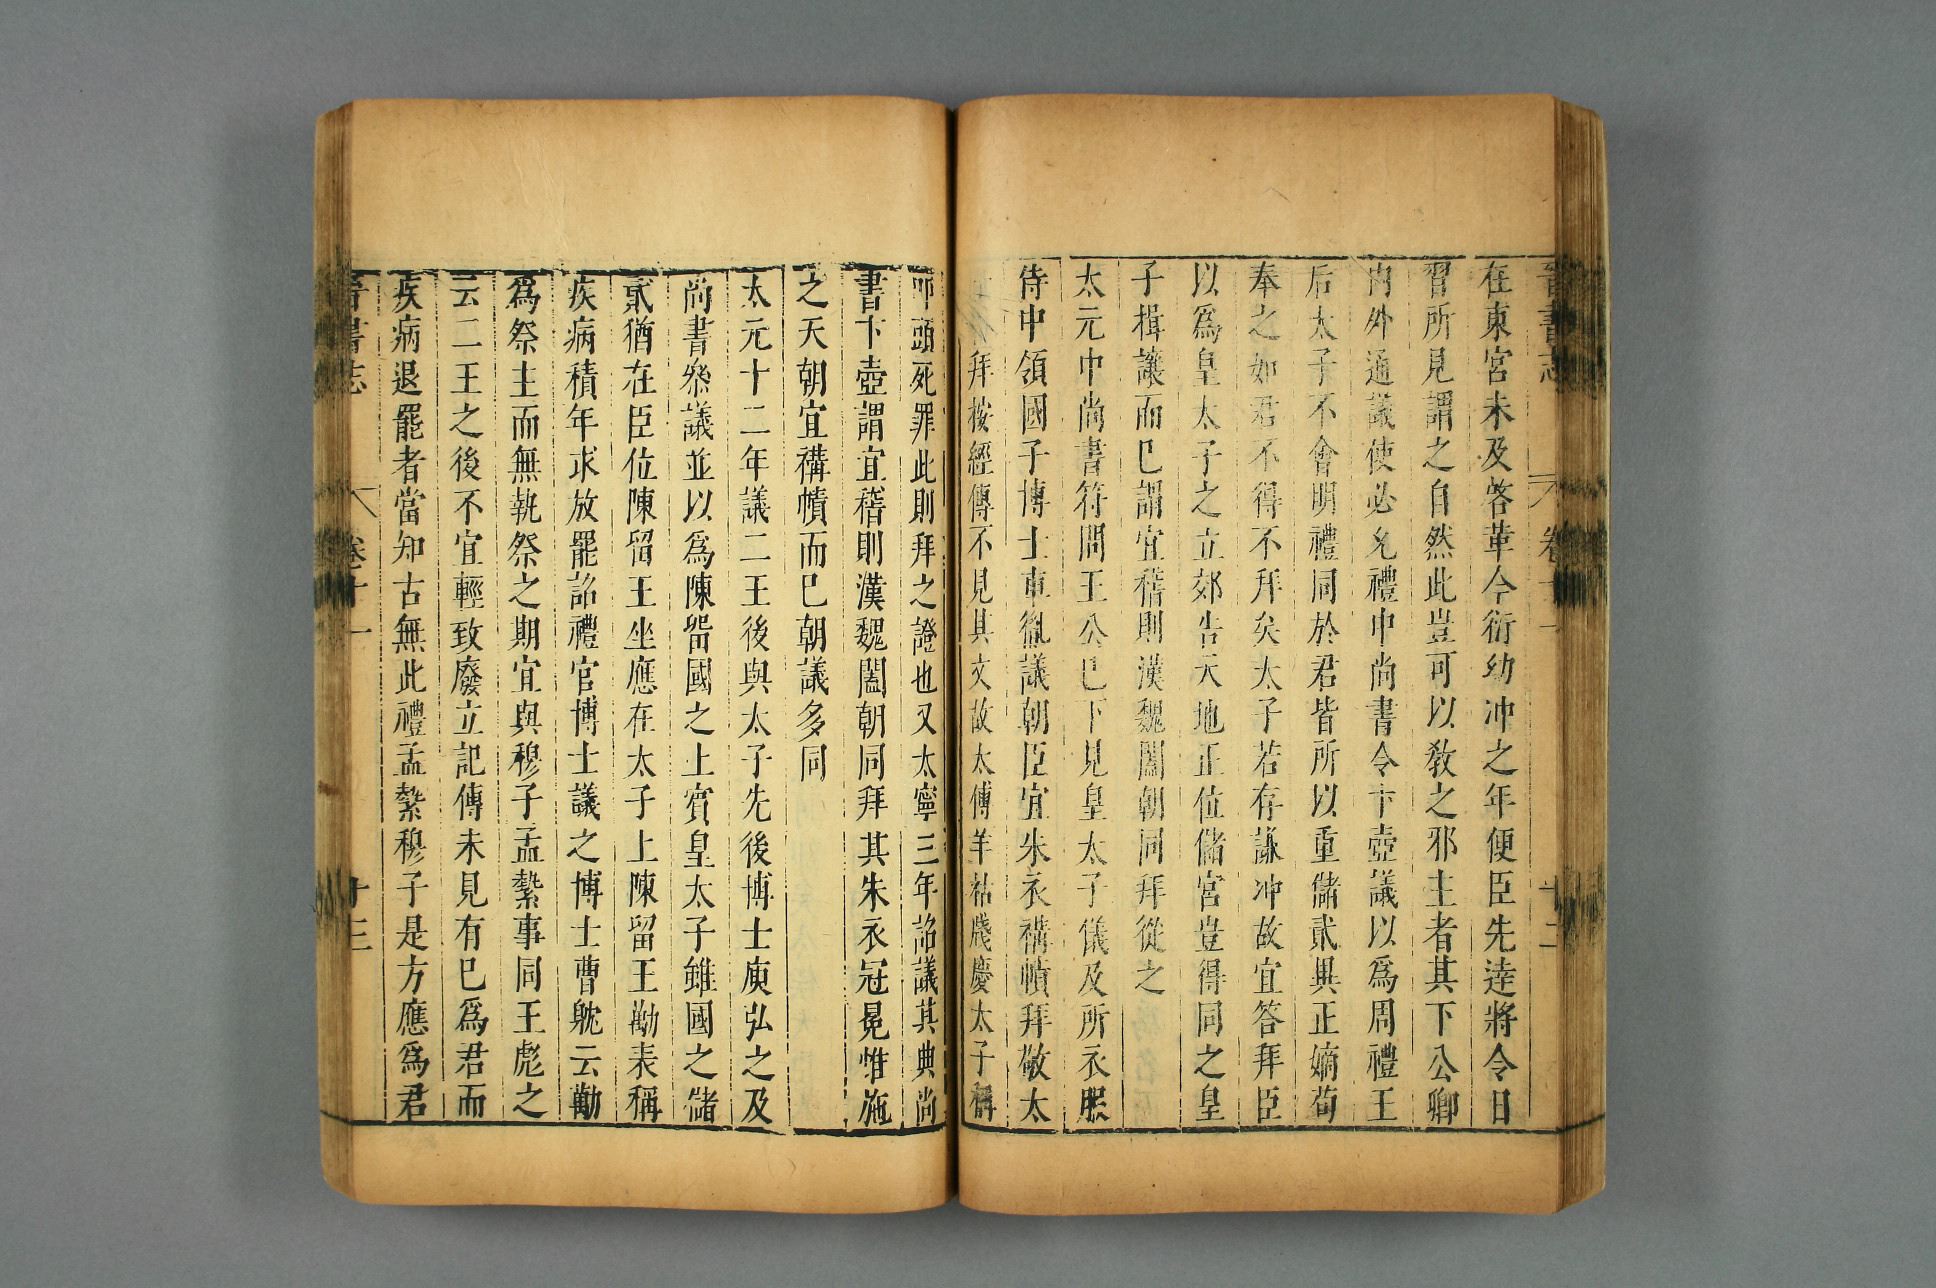 晉書志 卷十一 十二
在東宮未及答華今衍幼冲之年便臣先達將令日
習所見謂之自然此豈可以敎之邪主者其下公卿
內外通議使必允禮中尚書令卞壼議以為周禮王
后太子不會明禮同於君皆所以重儲貳異正嫡苟
奉之如君不得不拜矣太子若存謙冲故宜答拜臣
以爲皇太子之立郊告天地正位儲宮豈得同之皇
子揖讓而巳謂宜稽則漢魏闔朝同拜從之
太元中尚書符問王公巳下見皇太子儀及所衣服
侍中領國子博士車胤議朝臣宜朱衣褠幘拜敬太
拜按經傳不見其文故太傅羊祜牋慶太子稱
叩頭死罪此則拜之證也又太寧三年詔議其典尚
書卞壼謂宜稽則漢魏闔朝同拜其朱衣冠冕惟施
之天朝宜褠幘而巳朝議多同
太元十二年議二王後與太子先後博士庾弘之及
尚書參議並以爲陳留國之上賓皇太子雖國之儲
貳猶在臣位陳留王坐應在太子上陳留王勱表稱
疾病積年求放罷詔禮官博士議之博士曹躭云勱
爲祭主而無執祭之期宜與穆子孟縶事同王彪之
云二王之後不宜輕致廢立記傳未見有巳爲君而
疾病退罷者當知古無此禮孟縶穆子是方應爲君
晉書志 卷十一 十三